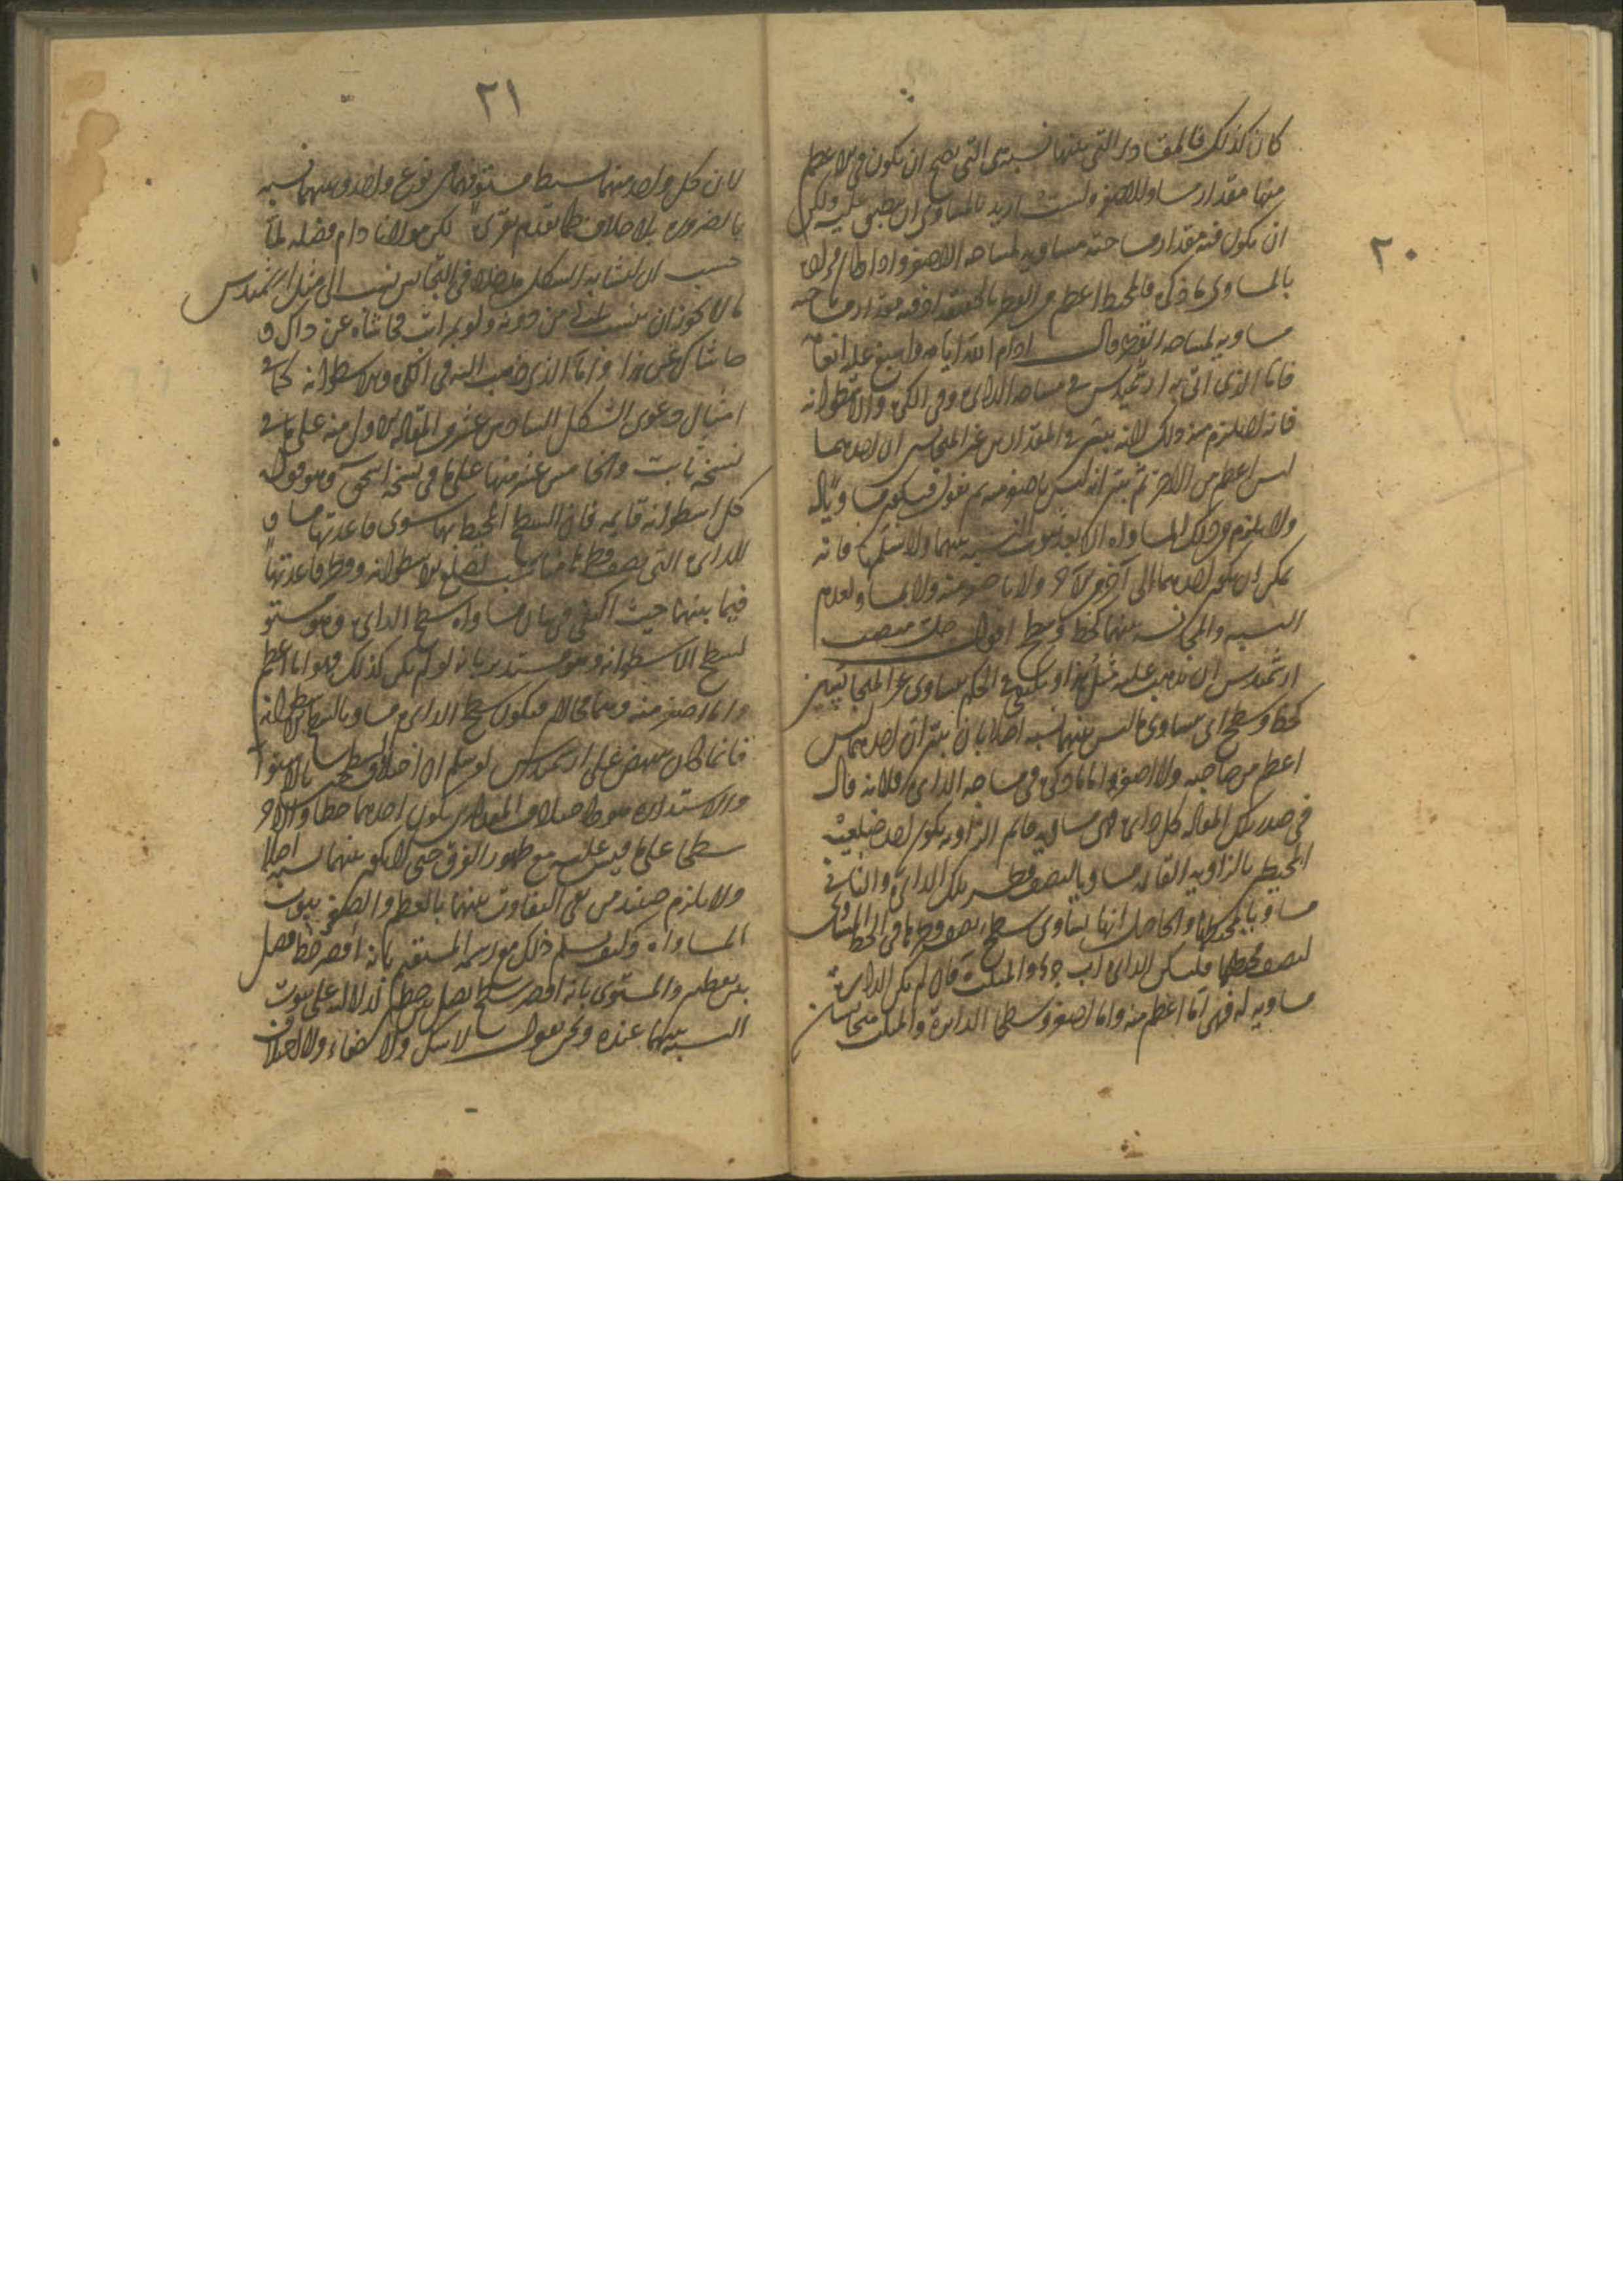 ٢٠
كان كذلك فالمقادير التي بينها نسبة هي التي يصح ان يكون في الاعظم
منها مقدار مساو للاصغر ولست اريد بالمساوي ان ينطبق عليه ولكن
ان يكون فيه مقدار مساحته مساوية لمساحه الاصغر واذا كان
بالمساوي ما ذكر فالمحيط اعظم من القطر بالحقيقة اذ فيه مقدار مساحته
مساويه لمساحه القطر قال ادام الله ايامه واسبغ عليه انعامه
فاما الذي اتى به ارشميدس في مساحه الدايره وفي الكره والاسطوانه
فانه لا يلزم من ذلك لانه يبين في المقدارين غير المتجانسين ان احدهما
ليس اعظم من الاخر ثم يبين انه ليس باصغر منه ثم يقول فيكون مساويا له
ولا يلزم من ذلك المساواه الا بعد ثبوت النسبه بينهما ولا نسلمها فانه
يمكن ان يكون احدهما لا آخر من الآخر ولا باصغر منه ولا بمساو لعدم
النسبه والمجانسه بينهما كخط وسطح اقول جلّ منصب
ارشميدس ان يذهب عليه مثل هذا او يكون في الحكم بتساوي غير المتجانسين
كخط وسطح اي بتساوي ما ليس بينهما نسبه اصلا بان يبين ان احدهما ليس
اعظم من صاحبه ولا اصغر واما ما ذكره في مساحه الدايره فلانه قال
في صدر تلك المقاله كل دايره فهي مساويه لمثلث قايم الزاويه يكون احد ضلعيه
المحيطين بالزاويه القايمه مساويا لنصف قطر تلك الدايره والثاني
مساويا لمحيطها والحاصل انها تساوي سطح نصف قطرها في الخط المساوي
لنصف محيطها فليكن الدايره ا ب ج د والمثلث ه فان لم يكن الدايره
مساويه له فهي اما اعظم منه واما اصغر وسطحا الدايرة والمثلث متجانسان
٢١
لان كل واحد منهما بسيط مستو فهما من نوع واحد وبينهما نسبه
بالضروره بلا خلاف كما تقدم تقريره لكن مولانا دام فضله لما
حسب ان لتشابه الشكل مدخلا في التجانس نسب الى مثل ارشميدس
ما لا يجوز ان ينسب الى من دونه ولو بمراتب فحاشاه عن ذاك و
حاشاك عن هذا واما الذي ذهب اليه في الكره والاسطوانه كما في
امثال دعوى الشكل السادس عشر من المقاله الاولى منه على ما في
نسخة ثابت والخامس عشر منها على ما في نسخه اسحق وهو قوله
كل اسطوانه قايمه فان السطح المحيط بها سوى قاعدتها مساو
للدايره التي نصف قطرها مناسب لضلع الاسطوانه وقطر قاعدتها
فيما بينهما حيث اكتفى في بيان مساواه سطح الدايره وهو مستو
لسطح الاسطوانه وهو مستدير بانه لو لم يكن كذلك فهو اما اعظم
واما اصغر منه وهما محالان فيكون سطح الدايره مساويا لسطح الاسطوانه
فانما كان ينهض على ارشميدس لو سلم ان اختلاف السطحين بالاستواء
والاستداره هو كاختلاف المقدارين بكون احدهما خطا والاخر
سطحا على ما قيس عليه مع ظهور الفرق حتى لا يكون بينهما نسبه اصلا
ولا يلزم حينئذ من نفي التفاوت بينهما بالعظم والصغر ثبوت
المساواه وكيف يسلم ذلك مع رسمه المستقيم بانه اقصر خط يصل
بين نقطتين والمستوي بانه اقصر سطح يصل بين خطين لدلالته على ثبوت
النسبه بينهما عنده ونحن نقول لا شك ولا خفاء ولا خلاف